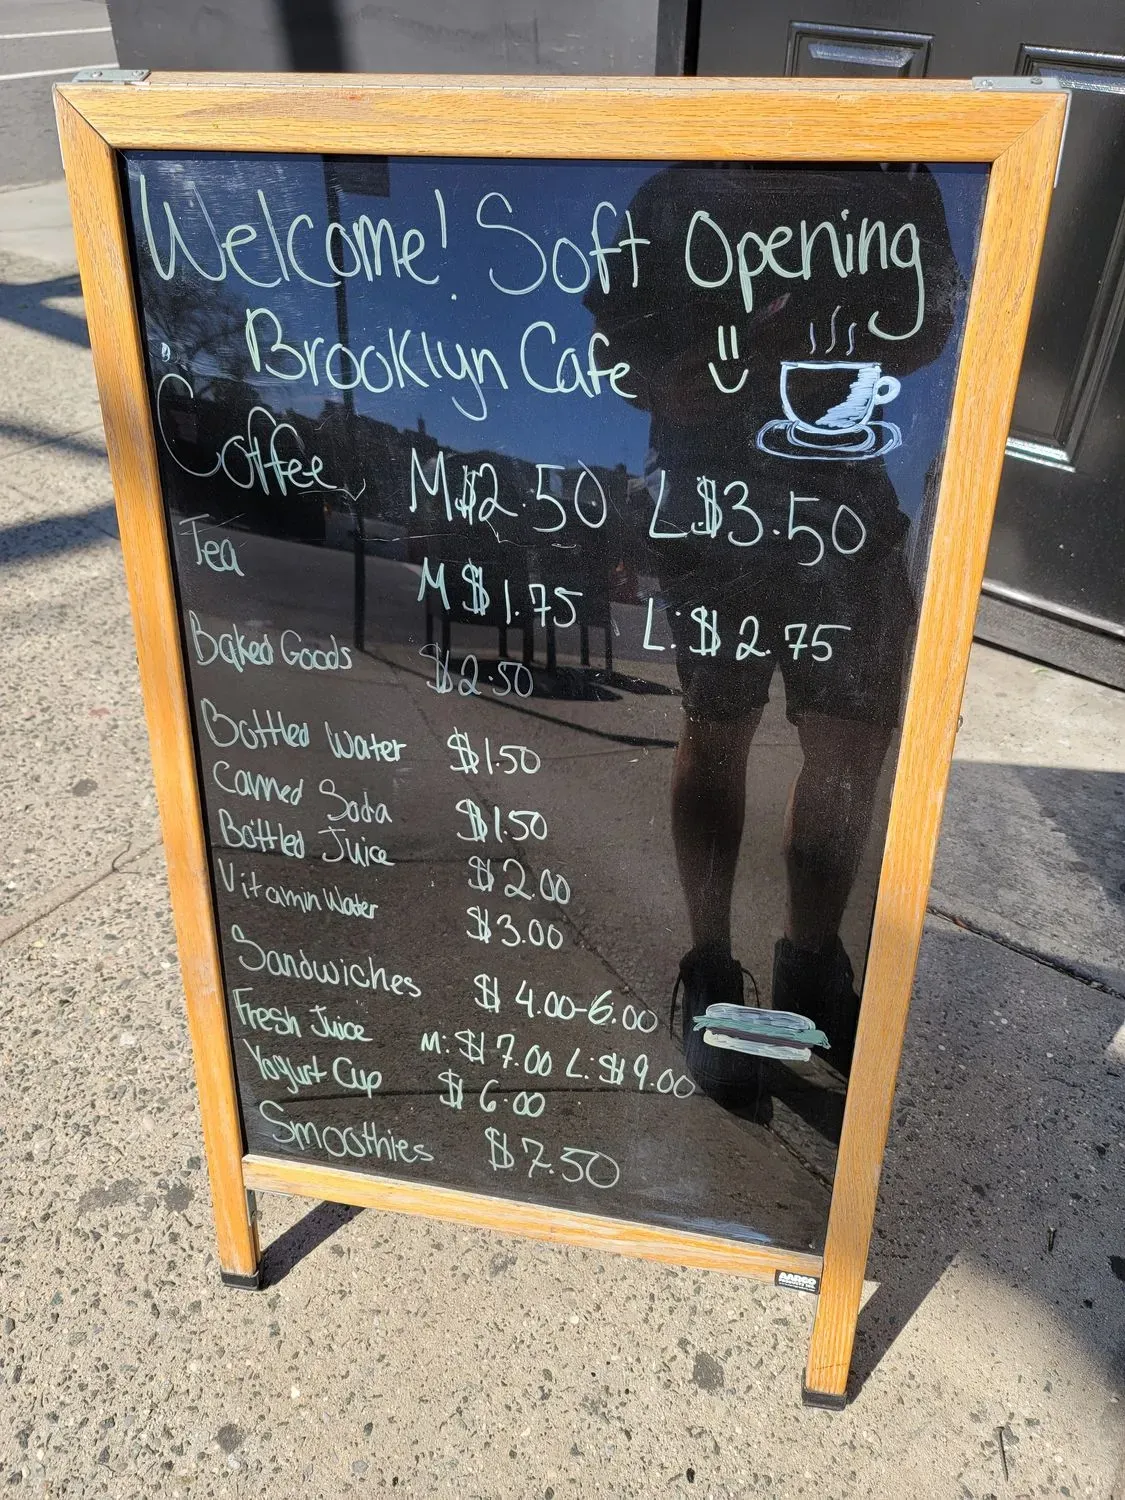 Welcome! Soft Opening
Brooklyn Cafe
Coffee M $2.50 L $3.50
Tea M $1.75 L: $2.75
Baked Goods $2.50
Bottled Water $1.50
Canned Soda $1.50
Bottled Juice $2.00
Vitamin Water $3.00
Sandwiches $4.00-6.00
Fresh Juice M: $7.00 L: $9.00
Yogurt Cup $6.00
Smoothies $7.50
AARCO